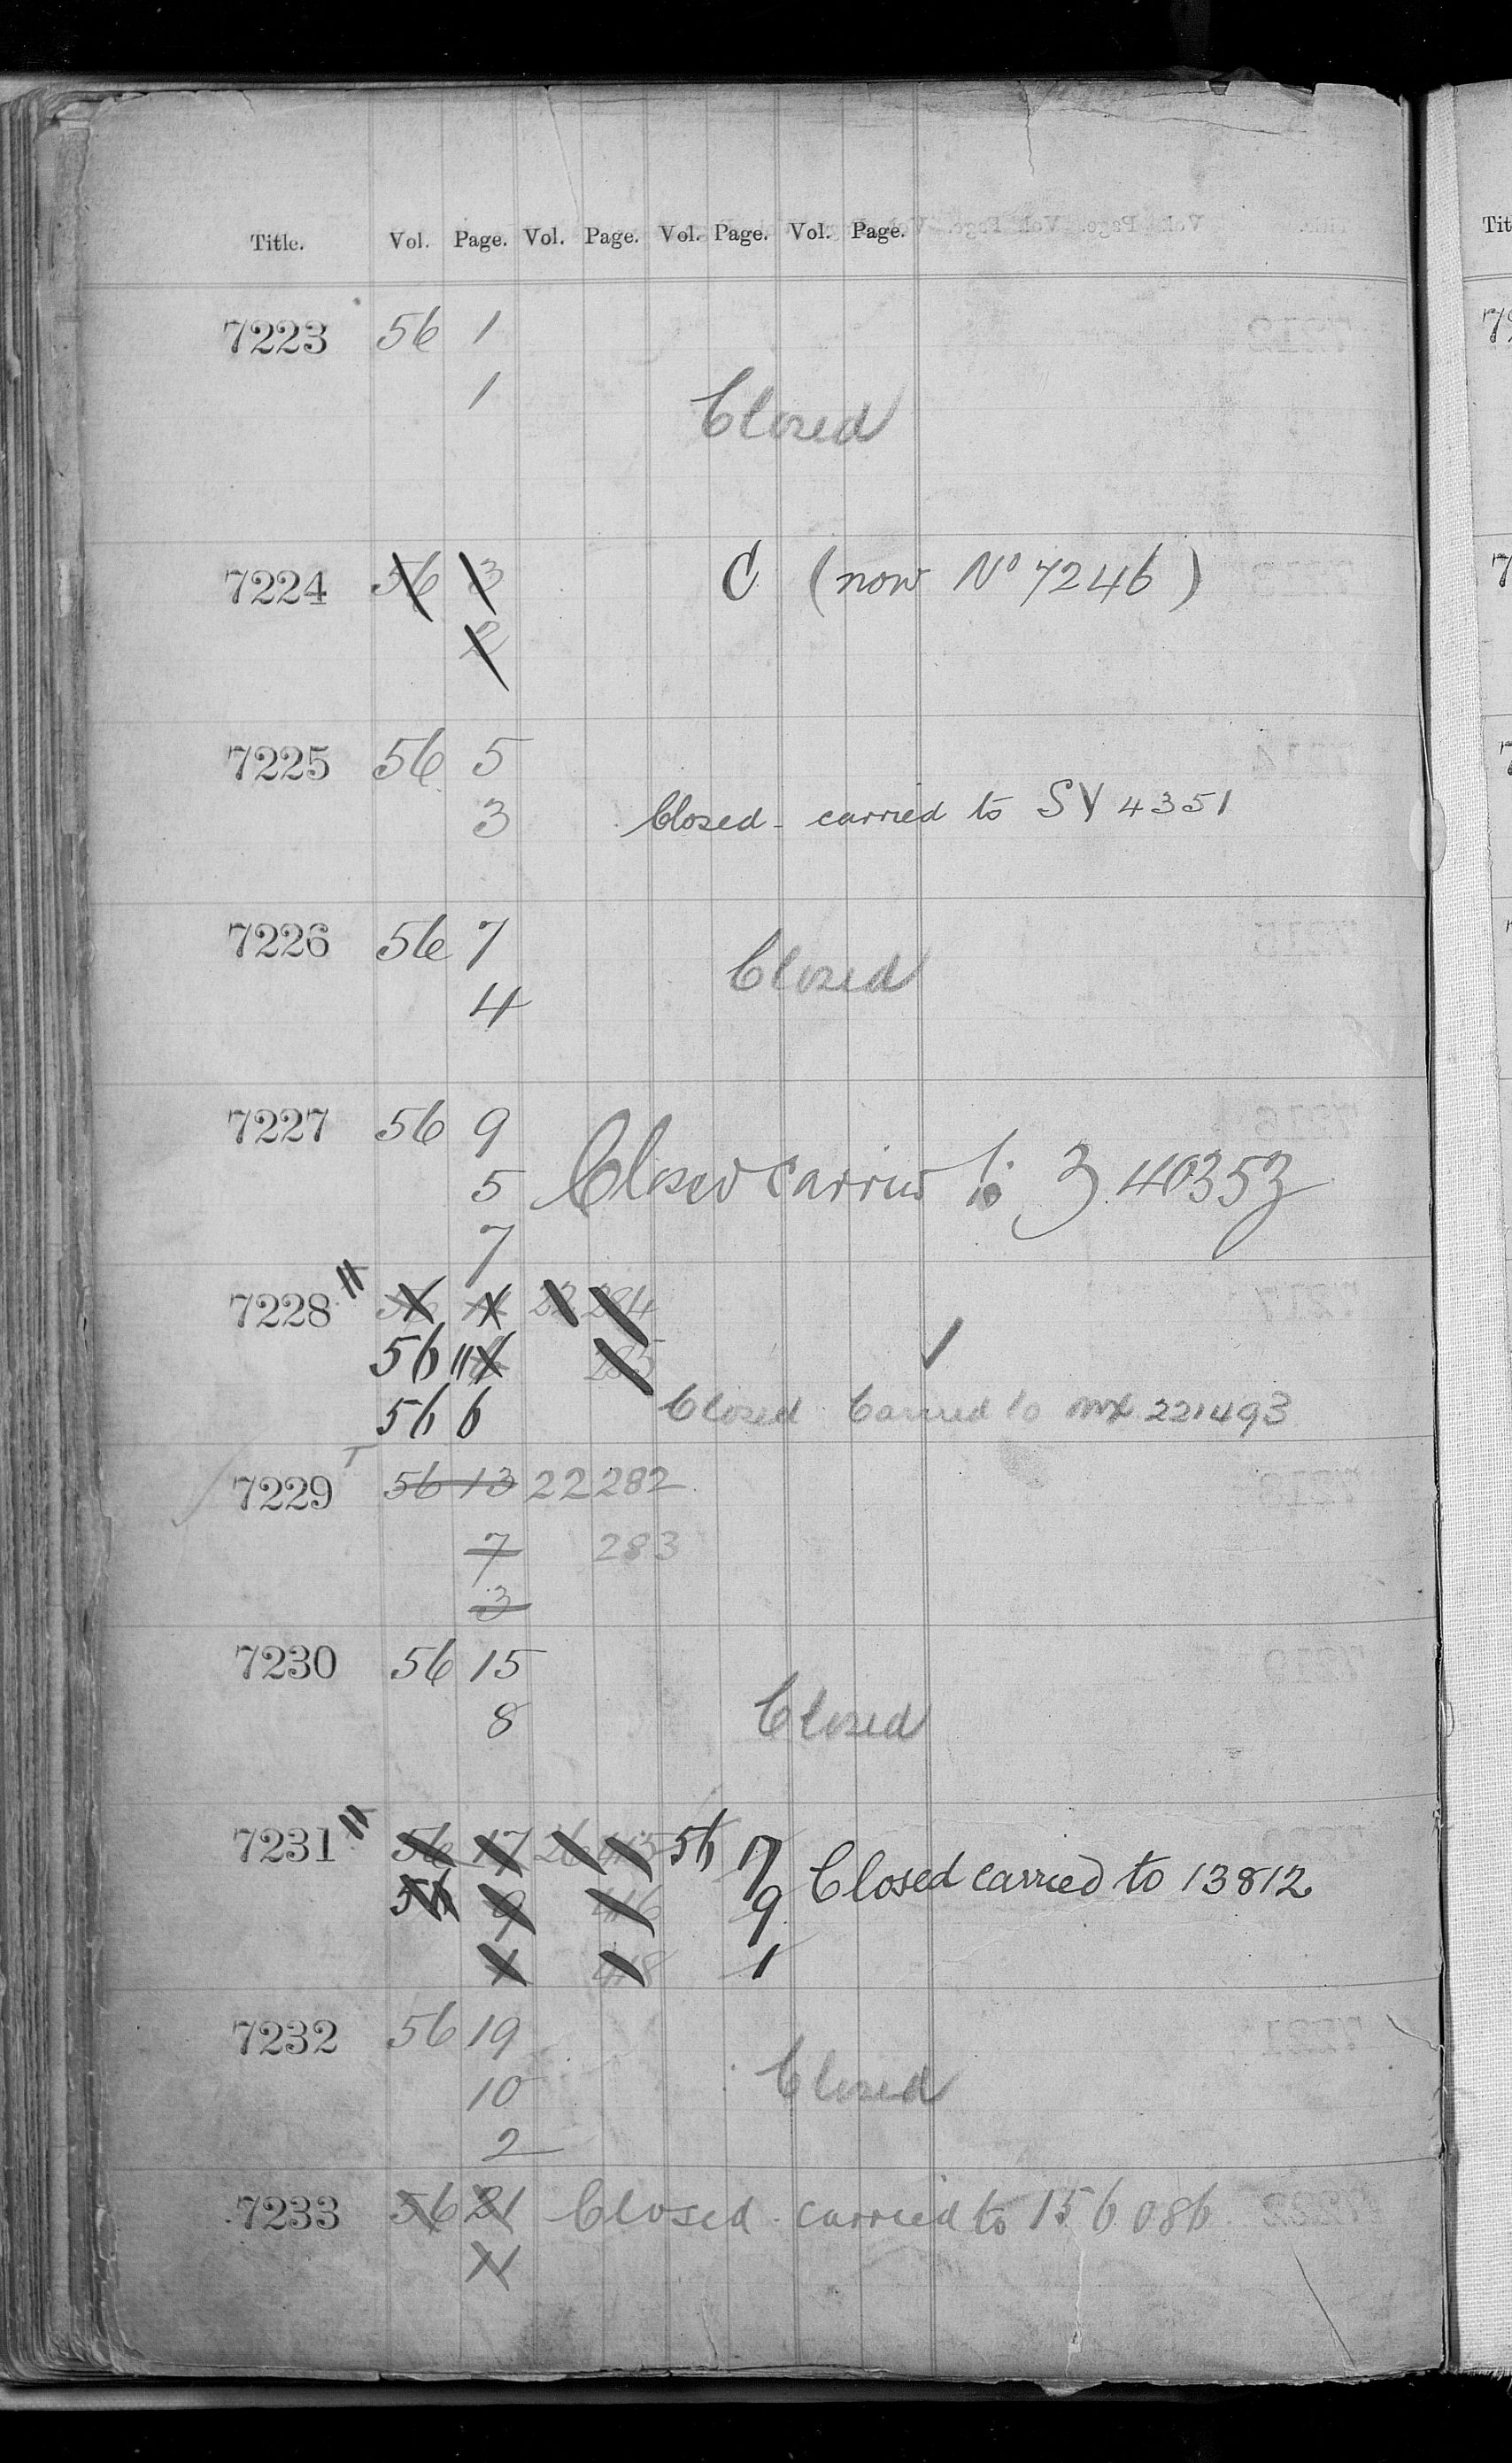 Title. Vol. Page. Vol. Page. Vol. Page. Vol. Page.
7223 56 1
1
Closed
7224 56 3 C (now No 7246)
2
7225 56 5
3 Closed - carried to SV 4351
7226 56 7
Closed
4
7227 56 9
5 Closed carried to 3 40353
7
7228 11 56 11 22 284
56 11 6 285
56 6 Closed Carried to mx 221493
7229 T 56 13 22 282
7 283
3
7230 56 15
8 Closed
7231 11 56 17 26 415 56 17
56 9 416 9 Closed carried to 13812
1 418 1
7232 56 19
10 Closed
2
7233 56 21 Closed carried to 156086
11